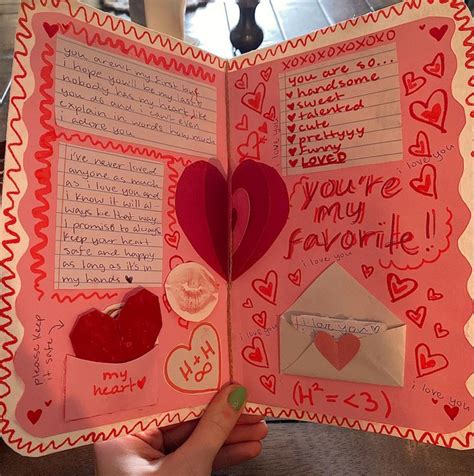 you arent my first but
i hope you'll be my last
nobody has my heart like
you do and i can't even
explain in words how much
i adore you
i've never lived
anyone as much
as i love you and
i know it will al
ways be that way
i promise to always
keep your heart
safe and happy
as long as it's in
my hands
please keep
it safe
my
heart
H+H
∞
XOXOXOXOXOXO
you are so...
handsome
sweet
talented
cute
prettyyy
funny
LOVED
i love you
i love you
you're
my
favorite!!
i love you
i love you
i love you
i love you
i love you
i love you
(H²=<3)